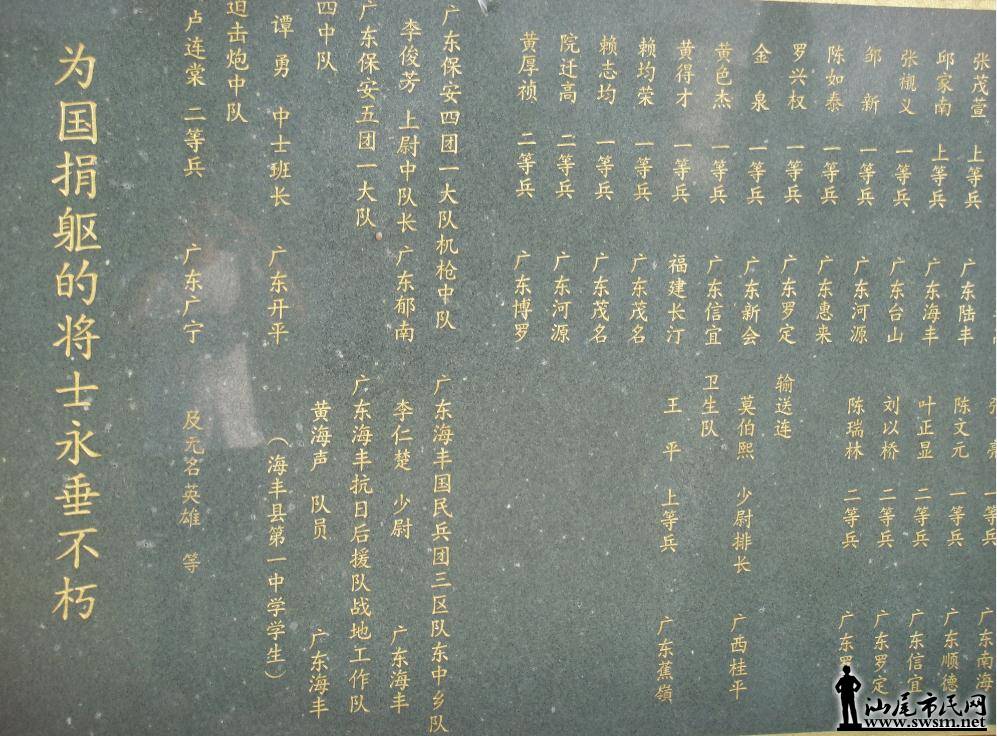 张茂萱 上等兵 广东陆丰
邱家南 上等兵 广东海丰
张槻义 一等兵 广东台山
邹 新 一等兵 广东河源
陈如泰 一等兵 广东惠来
罗兴权 一等兵 广东罗定
金 泉 一等兵 广东新会
黄色杰 一等兵 广东信宜
黄得才 一等兵 福建长汀
赖均荣 一等兵 广东茂名
赖志均 一等兵 广东茂名
院迁高 二等兵 广东河源
黄厚祯 二等兵 广东博罗
广东保安四团一大队机枪中队
李俊芳 上尉中队长 广东郁南
广东保安五团一大队
四中队
谭 勇 中士班长 广东开平
迫击炮中队
卢连棠 二等兵 广东广宁
一等兵 广东南海
陈文元 一等兵 广东顺德
叶正显 二等兵 广东信宜
刘以桥 二等兵 广东罗定
陈瑞林 二等兵 广东
输送连
莫伯熙 少尉排长 广西桂平
卫生队
王 平 上等兵 广东蕉嶺
广东海丰国民兵团三区队东中乡队
李仁楚 少尉 广东海丰
广东海丰抗日后援队战地工作队
黄海声 队员 广东海丰
（海丰县第一中学学生）
及无名英雄 等
为国捐躯的将士永垂不朽
汕尾市民网
www.swsm.net